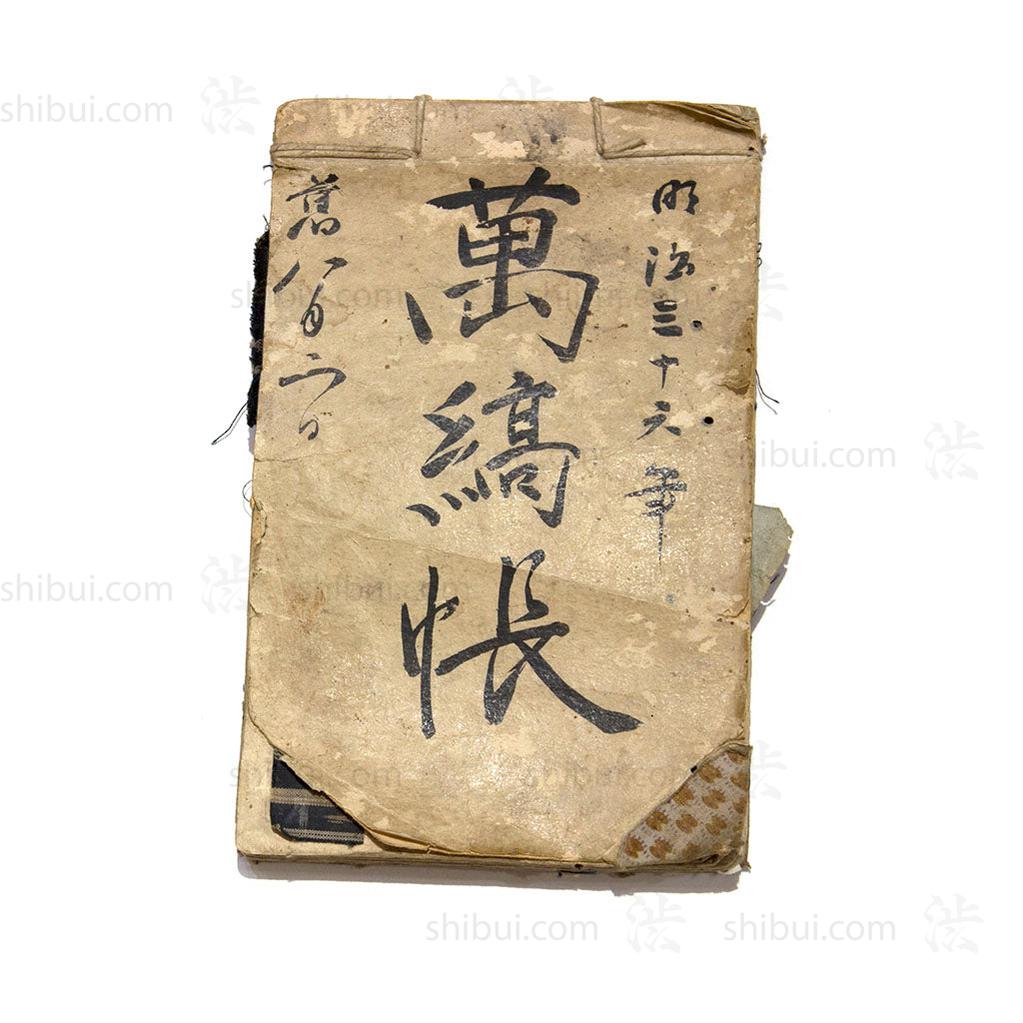 明治三十六年
萬縞帳
舊八月六日
shibui.com 渋
shibui.com 渋
shibui.com 渋
shibui.com 渋
shibui.com 渋 shibui.com 渋